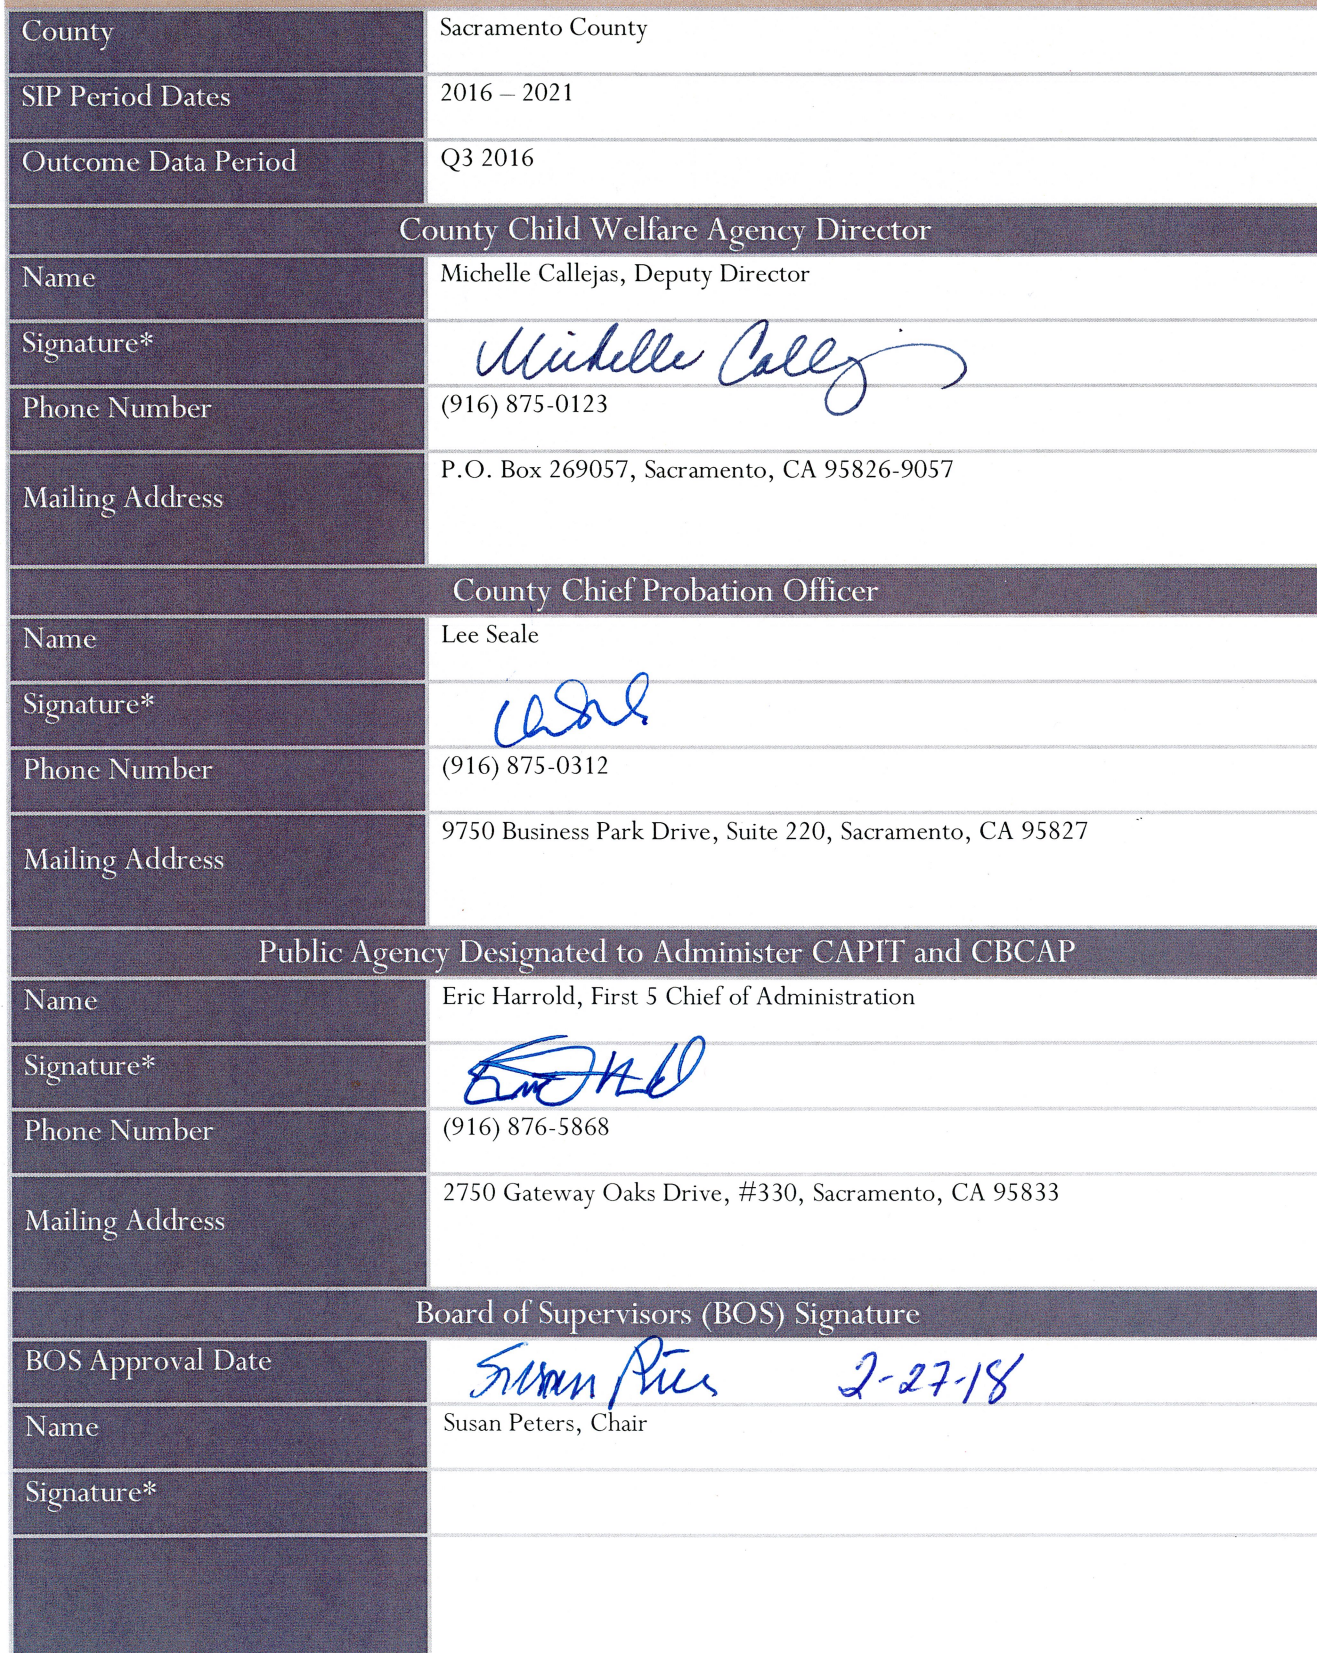 County Sacramento County
SIP Period Dates 2016 – 2021
Outcome Data Period Q3 2016
County Child Welfare Agency Director
Name Michelle Callejas, Deputy Director
Signature* Michelle Callejas
Phone Number (916) 875-0123
Mailing Address P.O. Box 269057, Sacramento, CA 95826-9057
County Chief Probation Officer
Name Lee Seale
Signature*
Phone Number (916) 875-0312
Mailing Address 9750 Business Park Drive, Suite 220, Sacramento, CA 95827
Public Agency Designated to Administer CAPIT and CBCAP
Name Eric Harrold, First 5 Chief of Administration
Signature*
Phone Number (916) 876-5868
Mailing Address 2750 Gateway Oaks Drive, #330, Sacramento, CA 95833
Board of Supervisors (BOS) Signature
BOS Approval Date Susan 2-27-18
Name Susan Peters, Chair
Signature*